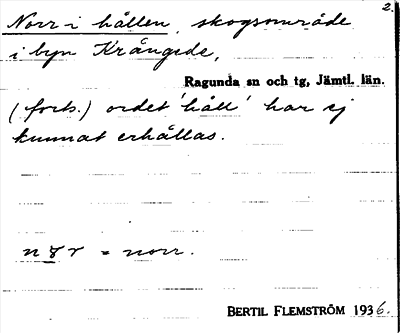 2.
Norr i hållen, skogsområde
i byn Krångede,
Ragunda sn och tg, Jämtl. län.
(forts.) ordet 'håll' har ej
kunnat erhållas.
= norr.
BERTIL FLEMSTRÖM 1936.